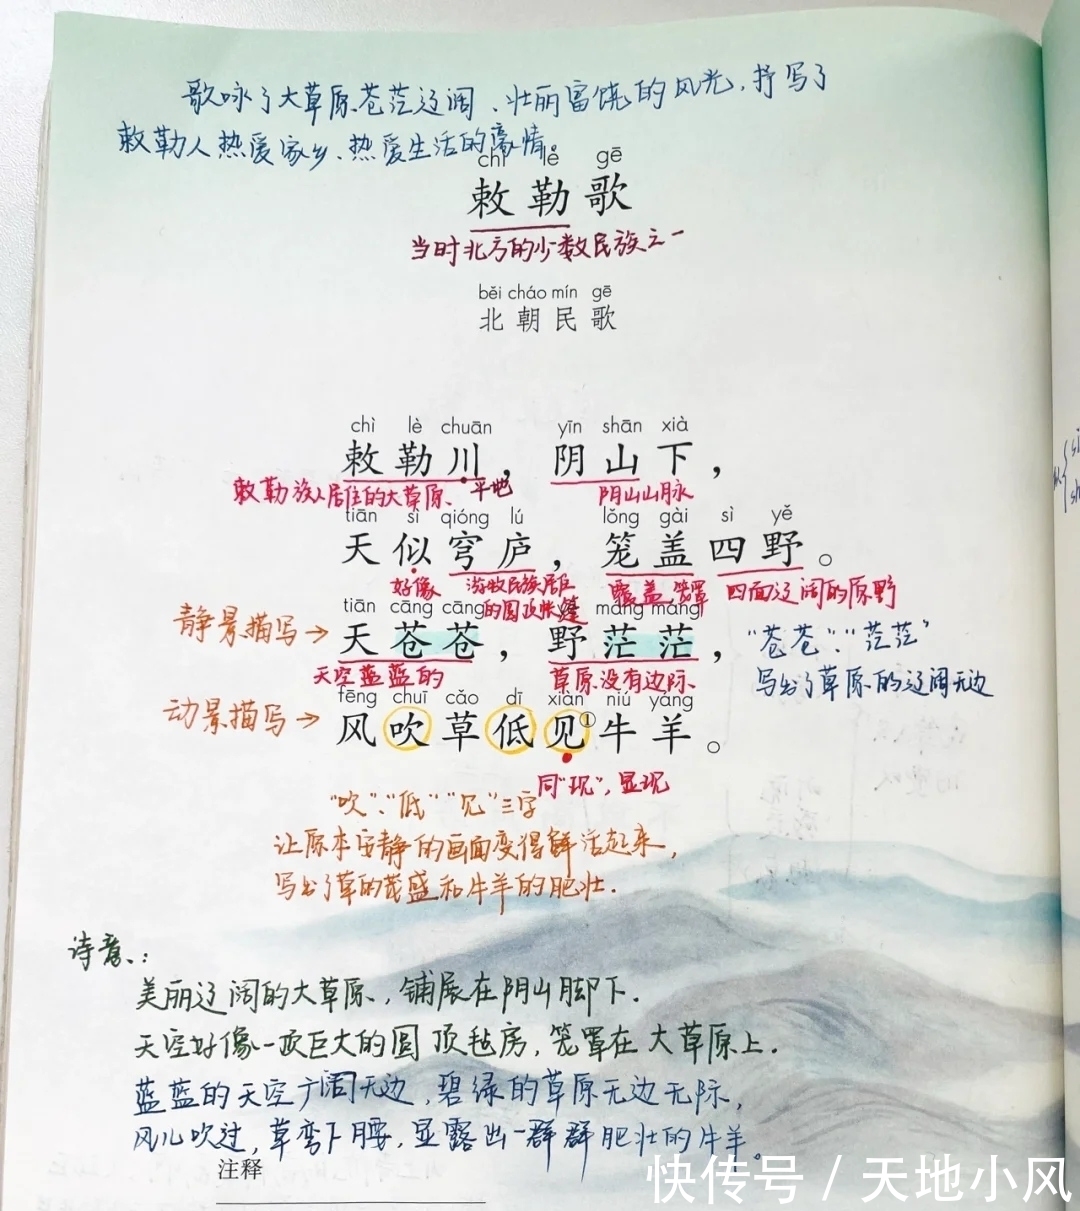 歌咏了大草原苍茫辽阔、壮丽富饶的风光,抒写了
敕勒人热爱家乡、热爱生活的豪情。
chì lè gē
敕勒歌
当时北方的少数民族之一
běi cháo mín gē
北朝民歌
chì lè chuān yīn shān xià
敕勒川,阴山下,
敕勒族人居住的大草原、平地 阴山山脉
tiān sì qióng lú lǒng gài sì yě
天似穹庐,笼盖四野。
好像 游牧民族居住的圆顶帐篷 覆盖 笼罩 四面辽阔的原野
tiān cāng cāng yě máng máng
静景描写→ 天苍苍,野茫茫,
“苍苍”“茫茫”
写出了草原的辽阔无边
天空蓝蓝的 草原没有边际
fēng chuī cǎo dī xiàn niú yáng
动景描写→ 风吹草低见①牛羊。
同“现”,显现
“吹”、“低”“见”三字
让原本安静的画面变得鲜活起来,
写出了草的茂盛和牛羊的肥壮.
诗意:
美丽辽阔的大草原,铺展在阴山脚下.
天空好像一顶巨大的圆顶毡房,笼罩在大草原上.
蓝蓝的天空广阔无边,碧绿的草原无边无际,
风儿吹过,草弯下腰,显露出一群群肥壮的牛羊。
注释
快传号 / 天地小风